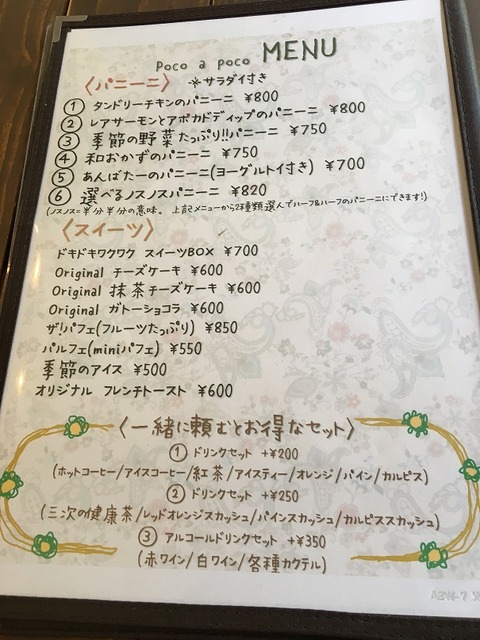 Poco a poco MENU
〈パニーニ〉 ※サラダイ付き
① タンドリーチキンのパニーニ ¥800
② レアサーモンとアボカドディップのパニーニ ¥800
③ 季節の野菜たっぷり!!パニーニ ¥750
④ 和おかずのパニーニ ¥750
⑤ あんばたーのパニーニ(ヨーグルトイ付き) ¥700
⑥ 選べるノスノスパニーニ ¥820
(ノスノス=半分半分の意味。 上記メニューから2種類選んでハーフ&ハーフのパニーニにできます!)
〈スイーツ〉
ドキドキワクワク スイーツBOX ¥700
Original チーズケーキ ¥600
Original 抹茶チーズケーキ ¥600
Original ガトーショコラ ¥600
ザ!パフェ(フルーツたっぷり) ¥850
パルフェ(miniパフェ) ¥550
季節のアイス ¥500
オリジナル フレンチトースト ¥600
〈一緒に頼むとお得なセット〉
① ドリンクセット +¥200
(ホットコーヒー/アイスコーヒー/紅茶/アイスティー/オレンジ/パイン/カルピス)
② ドリンクセット +¥250
(三次の健康茶/レッドオレンジスカッシュ/パインスカッシュ/カルピススカッシュ)
③ アルコールドリンクセット +¥350
(赤ワイン/白ワイン/各種カクテル)